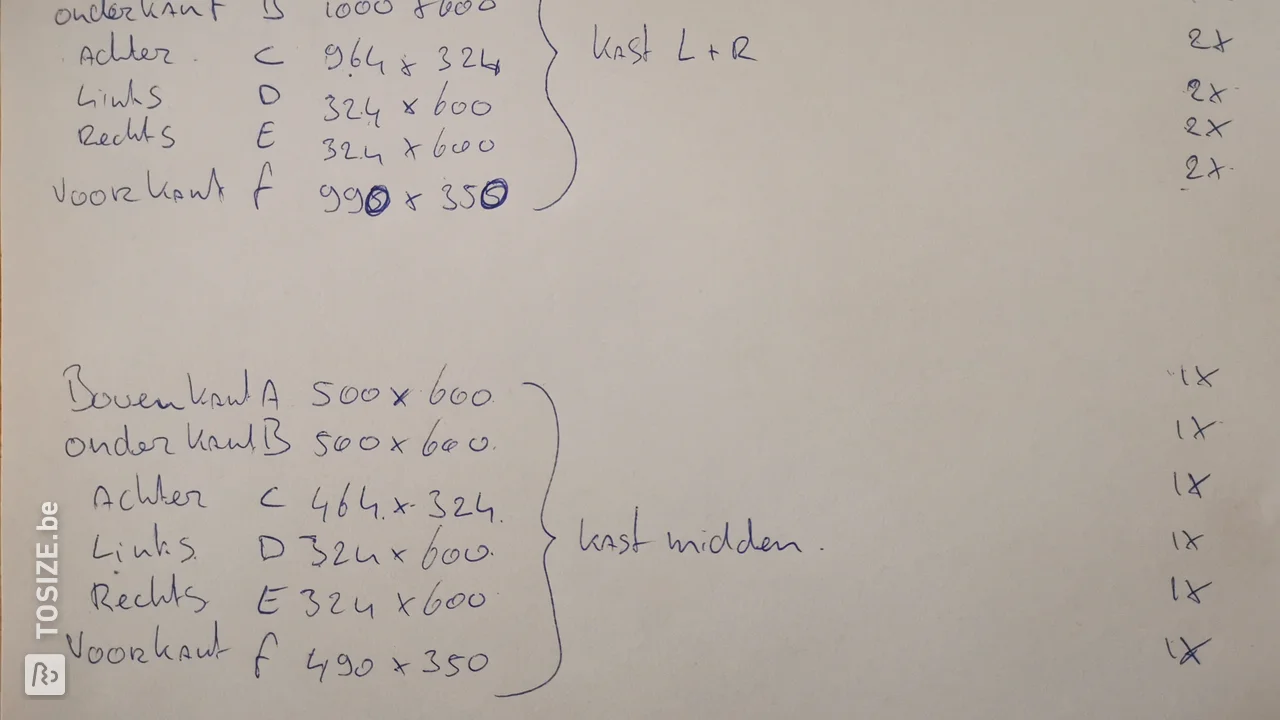 onderkant B 1000 x 600
Achter C 964 x 324 Kast L + R 2x
Links D 324 x 600 2x
Rechts E 324 x 600 2x
Voorkant f 990 x 350 2x
Bovenkant A 500 x 600. 1x
onderkant B 500 x 600. 1x
Achter C 464 x 324. 1x
Links D 324 x 600. kast midden. 1x
Rechts E 324 x 600 1x
Voorkant f 490 x 350 1x
TOSIZE.be